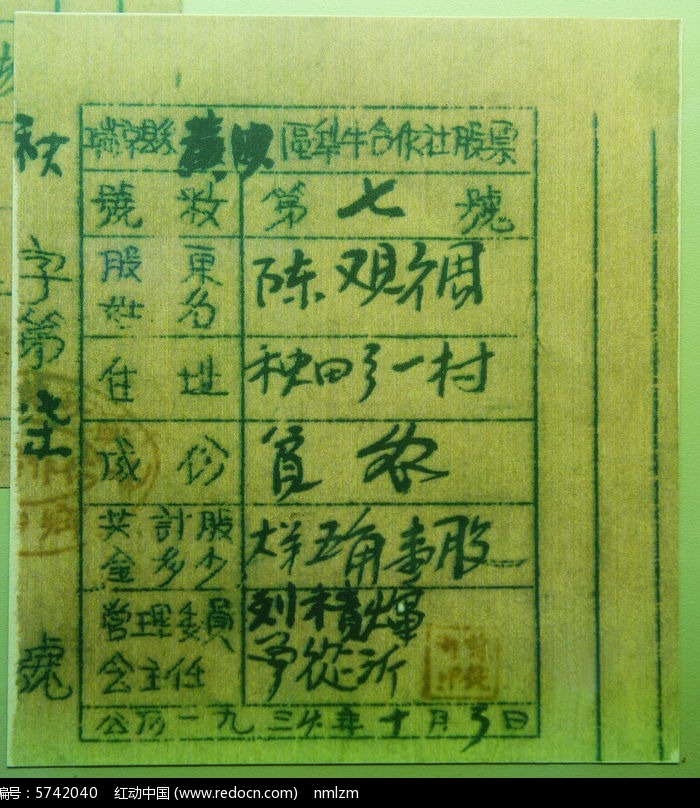 瑞京縣黄安區犁牛合作社股票
號数 第七號
股東姓名 陈观
住址 秧田 一村
成份 貧农
共計股金多少 大洋五角 股
管理委員会主任 刘 輝
從沂
公历一九三四年十月 日
秧字第柒號
编号：5742040 红动中国 (www.redocn.com) nmlzm